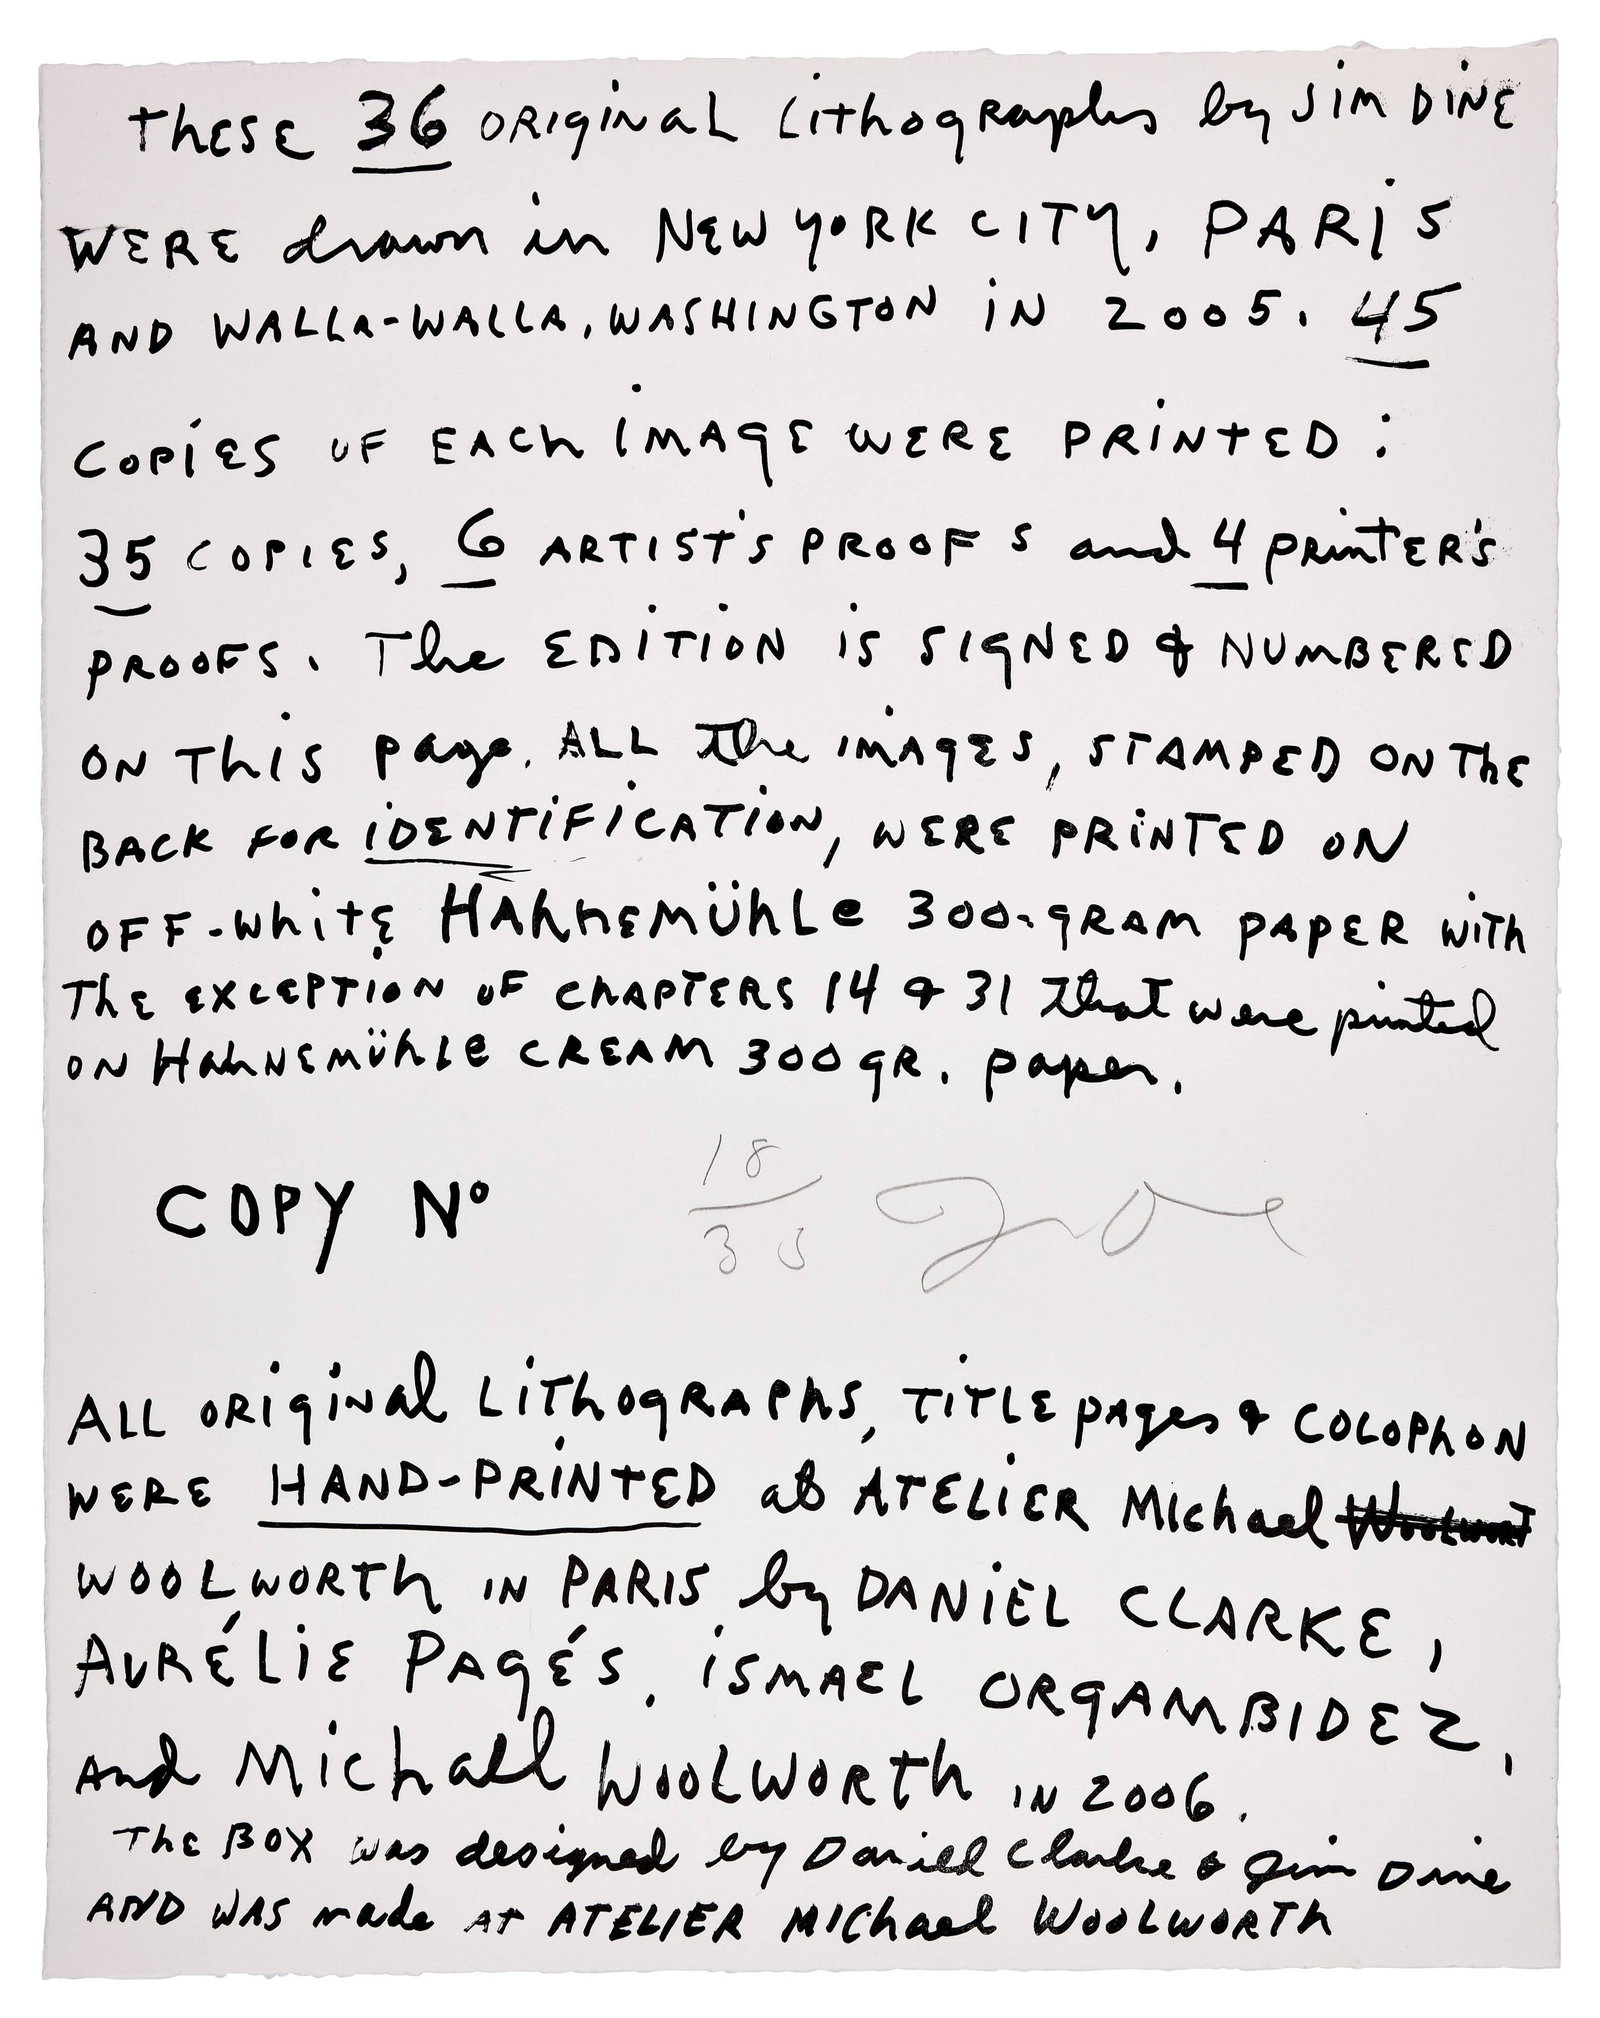 THESE 36 ORIGINAL LITHOGRAPHS by JIM DINE
WERE drawn in NEW YORK CITY, PARIS
AND WALLA-WALLA, WASHINGTON IN 2005. 45
COPIES OF EACH IMAGE WERE PRINTED:
35 COPIES, 6 ARTIST'S PROOFS and 4 PRINTER'S
PROOFS. The EDITION IS SIGNED & NUMBERED
ON THIS page. ALL the IMAGES, STAMPED ON THE
BACK FOR IDENTIFICATION, WERE PRINTED ON
OFF-WHITE HAHNEMÜHLE 300-GRAM PAPER WITH
THE EXCEPTION OF CHAPTERS 14 & 31 that were printed
ON HAHNEMÜHLE CREAM 300 GR. paper.
COPY Nº 18/35 Jim Dine
ALL ORIGINAL LITHOGRAPHS, TITLE PAGES & COLOPHON
WERE HAND-PRINTED at ATELIER Michael Woolwort
WOOLWORTH IN PARIS by DANIEL CLARKE,
AURÉLIE PAGÉS, ISMAEL ORGAMBIDEZ,
AND Michael WOOLWORTH IN 2006.
THE BOX was designed by Daniel Clarke & Jim Dine
AND WAS made AT ATELIER Michael WOOLWORTH